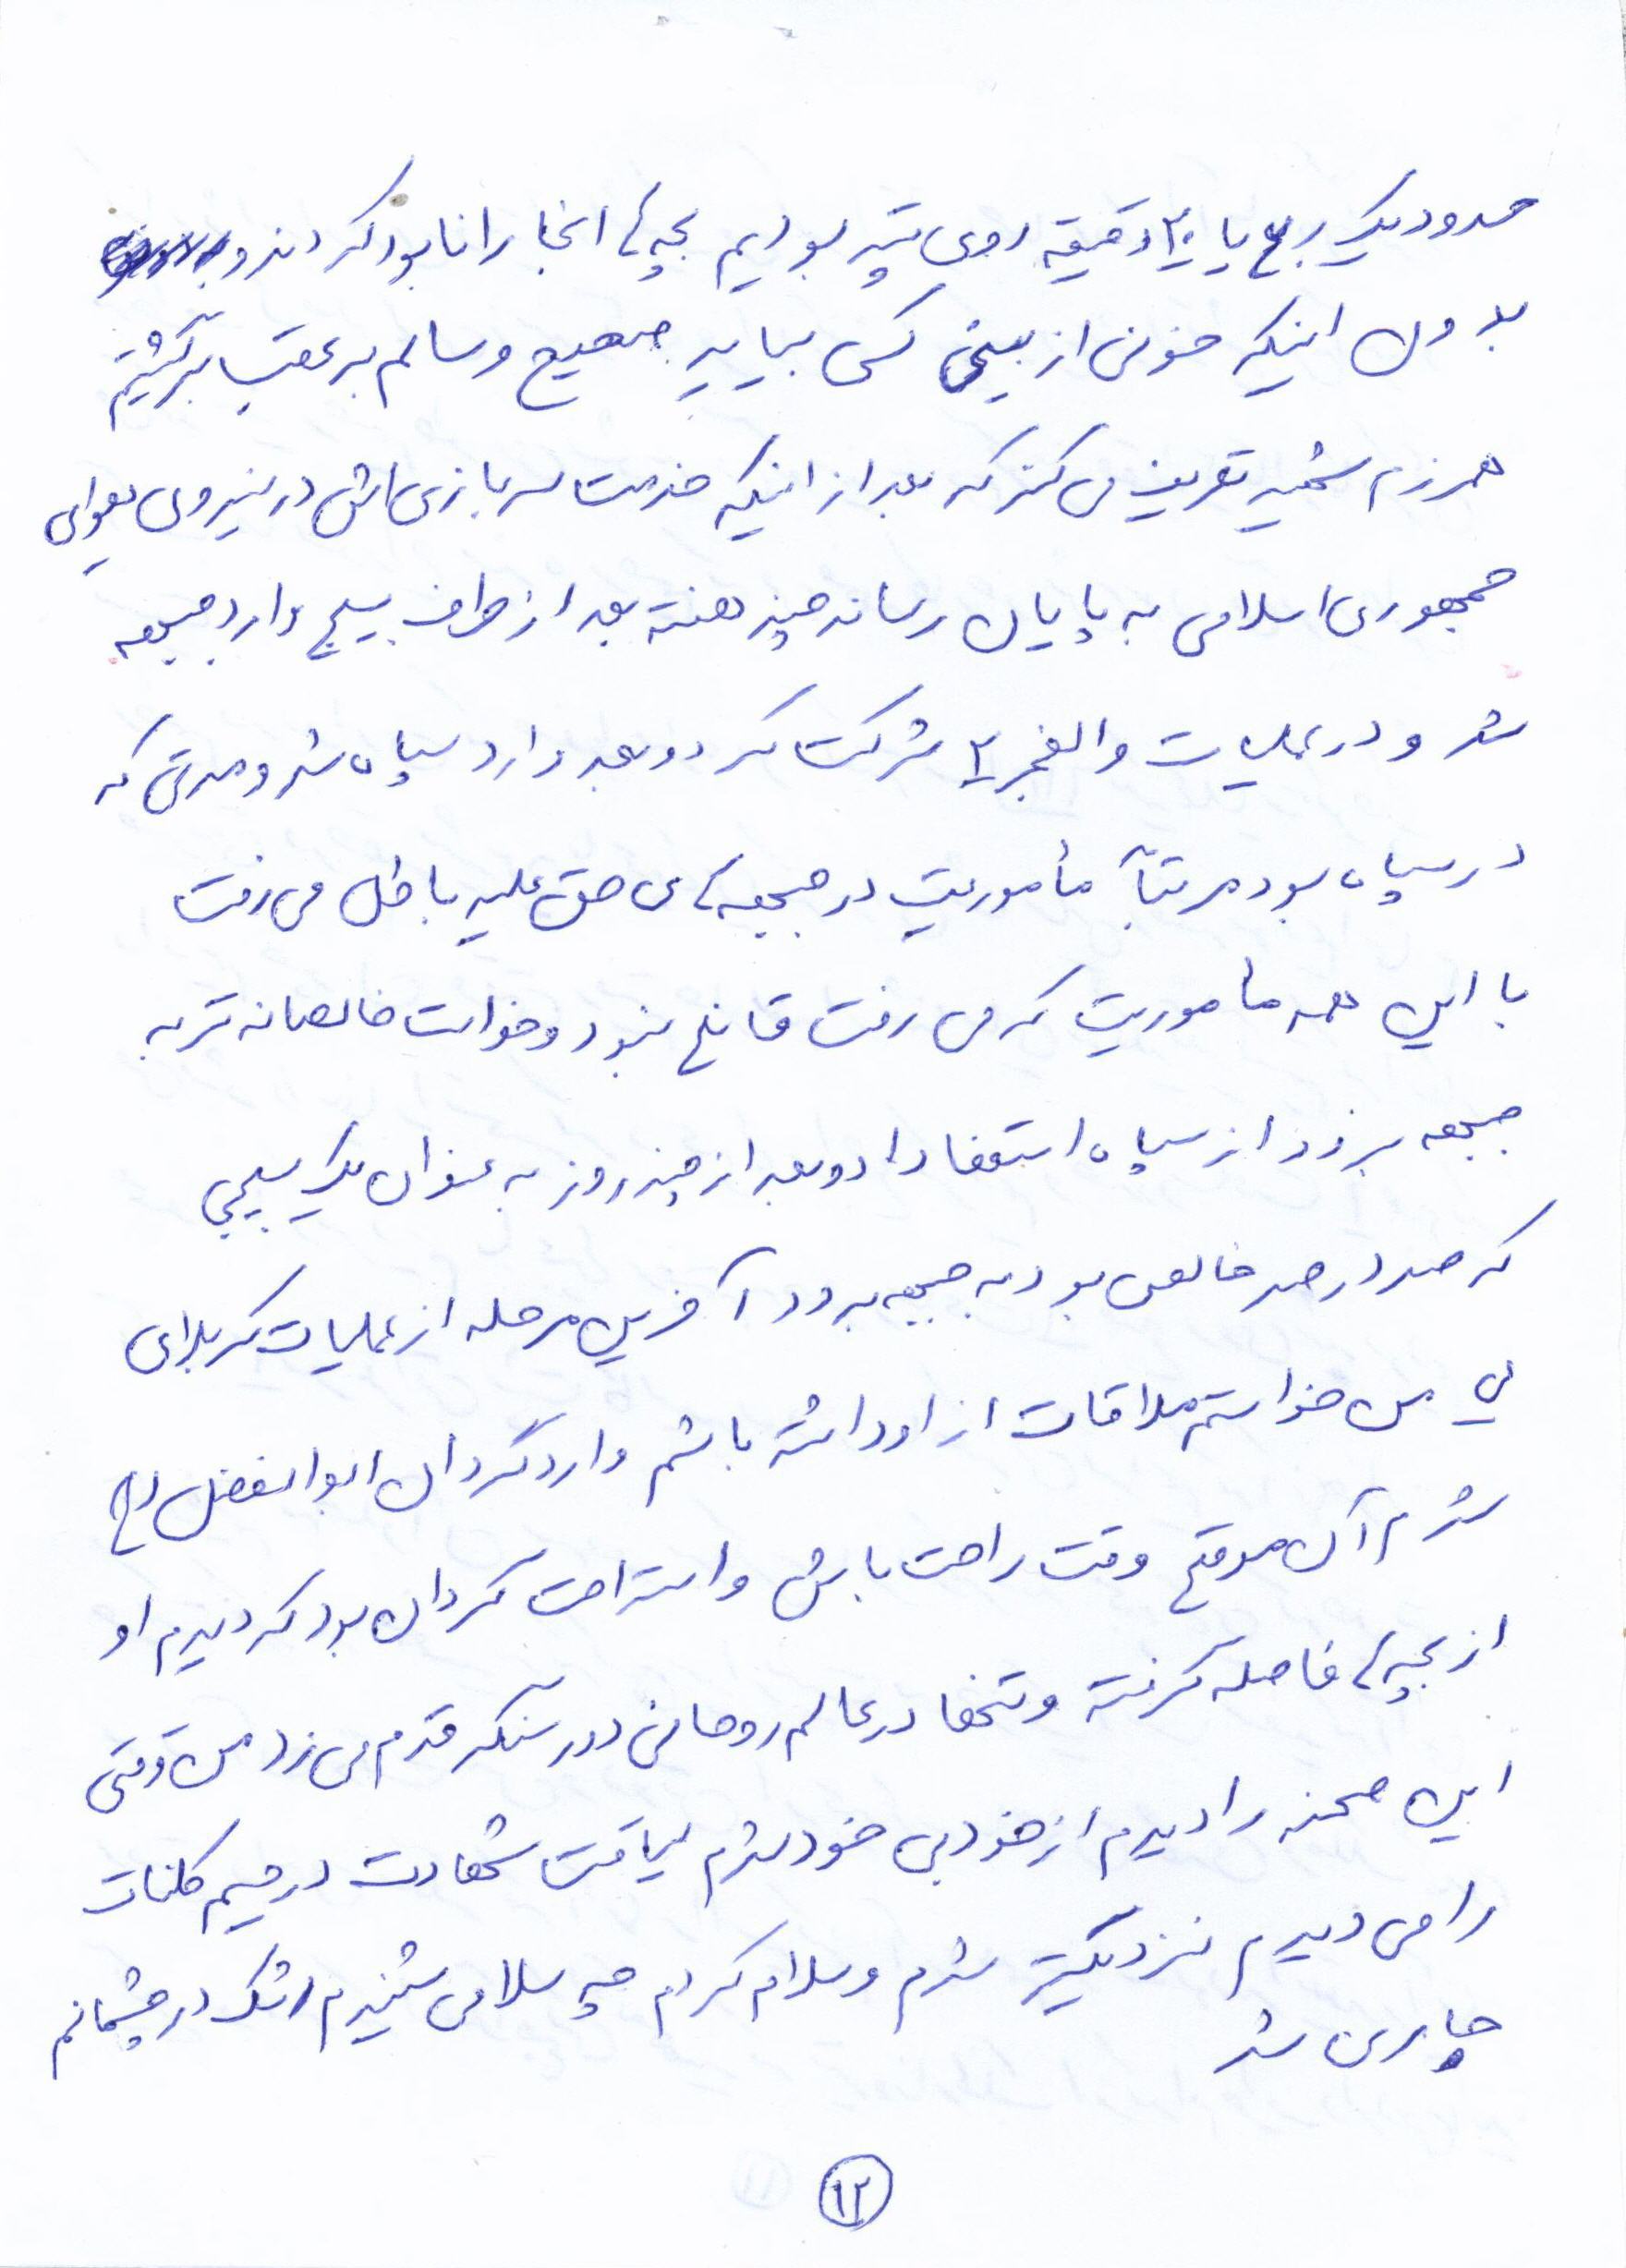 حدود یک ربع یا ۲۰ دقیقه روی تپه بودیم بچه‌ها انجا را نابود کردند و
بدون اینکه خونی از بینی کسی بیاید صحیح و سالم به عقب برگشتیم
همرزم شهید تعریف می کند که بعد از اینکه خدمت سربازی اش در نیروی هوایی
جمهوری اسلامی به پایان رساند چند هفته بعد از طرف بسیج وارد جبهه
شد و در عملیات والفجر ۲ شرکت کرد و بعد وارد سپاه شد و مدتی که
در سپاه بود مرتباً مأموریت در جبهه‌های حق علیه باطل می رفت
با این همه مأموریت که می رفت قانع نبود و خواست خالصانه تر به
جبهه برود از سپاه استعفا داد و بعد از چند روز به عنوان یک بسیجی
که صد در صد خالص بود به جبهه برود آخرین مرحله از عملیات کربلای
من خواستم ملاقات از او داشته باشم وارد گردان ابوالفضل (ع)
شدم آن موقع وقت راحت باش و استراحت گردان بود که دیدم او
از بچه‌ها فاصله گرفته و تنها در عالم روحانی دور سنگر قدم می زد من وقتی
این صحنه را دیدم از خود بی خود شدم لیاقت شهادت در سیم کلمات
را می دیدم نزدیکتر شدم و سلام کردم چه سلامی شنیدم اشک در چشمانم
جاری شد
۱۲